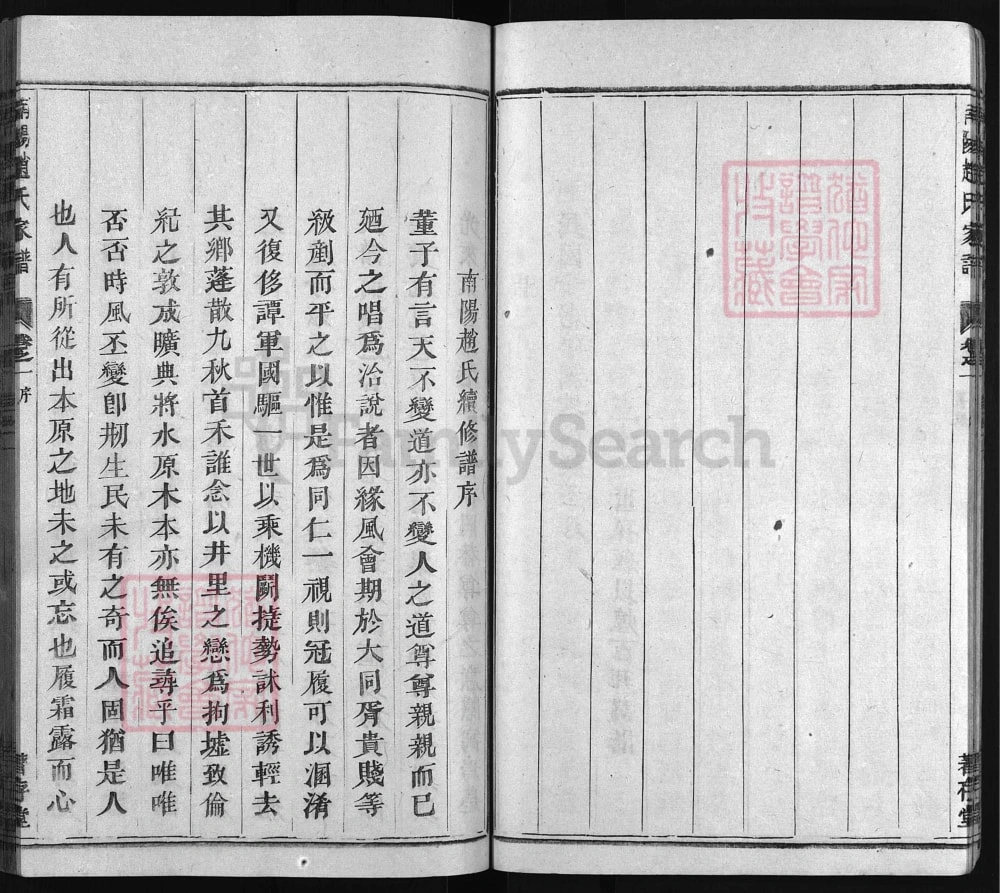 南陽趙氏家譜
卷之一
著存堂
猶他家譜學會收藏
南陽趙氏續修譜序
董子有言天不變道亦不變人之道尊尊親親而已
廼今之唱爲治說者因緣風會期於大同胥貴賤等
級剷而平之以惟是爲同仁一視則冠履可以溷淆
又復侈譚軍國驅一世以乘機鬭捷勢訹利誘輕去
其鄉蓬散九秋首禾誰念以井里之戀爲拘墟致倫
紀之敦成曠典將水原木本亦無俟追尋乎曰唯唯
否否時風丕變卽刱生民未有之奇而人固猶是人
也人有所從出本原之地未之或忘也履霜露而心
南陽趙氏家譜
卷之一
序
著存堂
猶他家譜學會收藏
FamilySearch